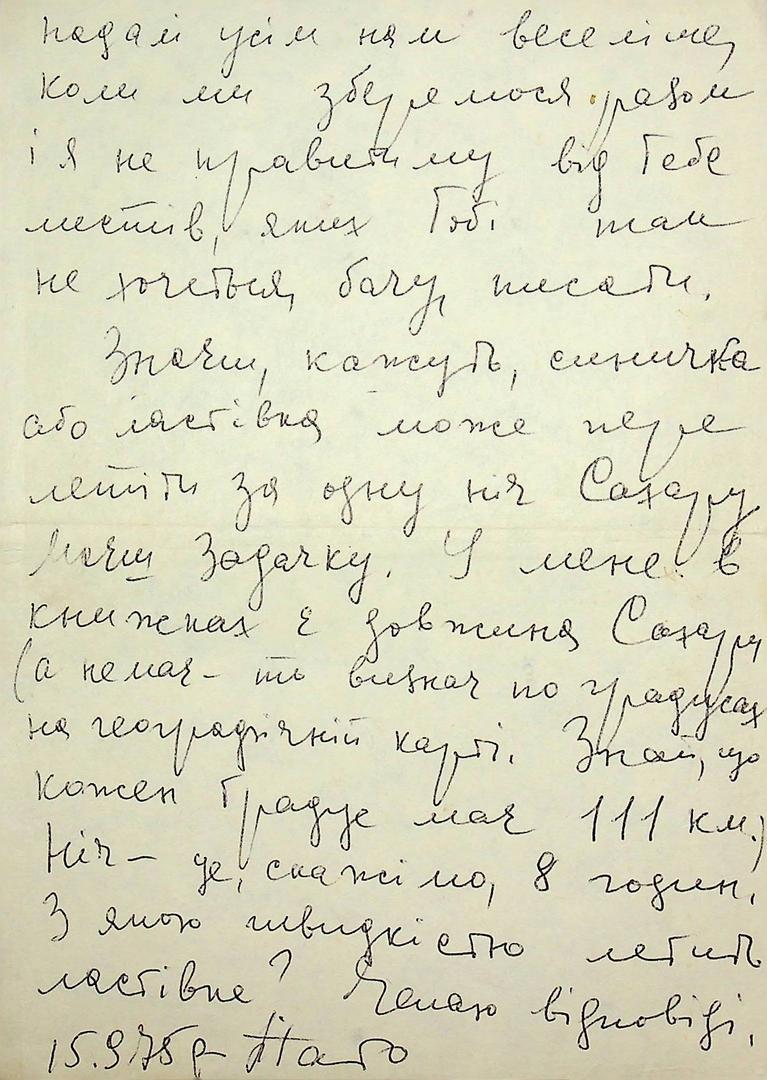 надалі усім нам веселіше,
коли ми зберемося разом
і я не правитиму від Тебе
листів, яких Тобі так
не хочеться, бачу, писати.
Значить, кажуть, синичка
або ластівка може пере
летіти за одну ніч Сахару
Маєш задачку. У мене в
книжках є довжина Сахари
(а немає – то визнач по градусах
на географічній карті. Знай, що
кожен градус має 111 км.)
Ніч – це, скажімо, 8 годин.
З якою швидкістю летить
ластівка? Чекаю відповіді.
15.9.75р Тато